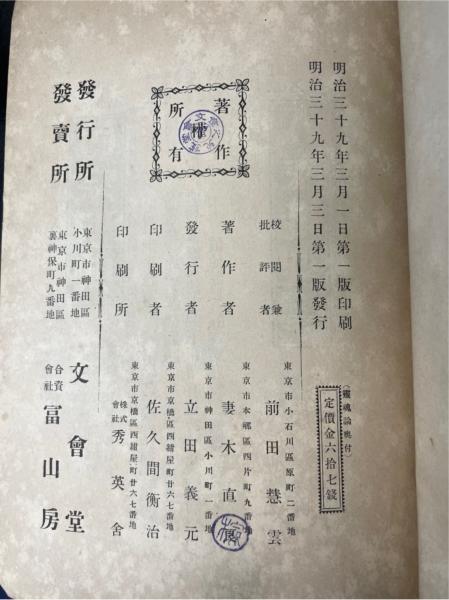 明治三十九年三月一日第一版印刷
明治三十九年三月三日第一版發行
(靈魂論奧付)
定價金六拾七錢
著作
權
所有
校閲兼
批評者
東京市小石川區原町二番地
前田慧雲
著作者
東京市本郷區四片町九番地
妻木直
發行者
東京市神田區小川町一番地
立田義元
印刷者
東京市京橋區西紺屋町廿六七番地
佐久間衡治
印刷所
東京市京橋區西紺屋町廿六七番地
株式
會社
秀英舍
發行所
東京市神田區
小川町一番地
文會堂
發賣所
東京市神田區
裏神保町九番地
合資
會社
富山房